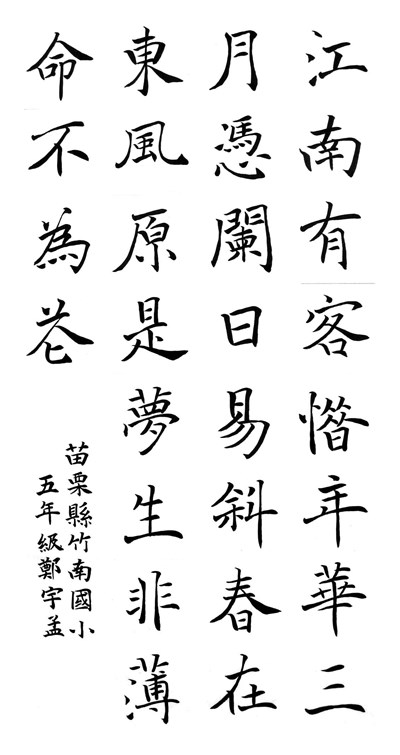 江南有客惜年華三
月憑闌日易斜春在
東風原是夢生非薄
命不為花
苗栗縣竹南國小
五年級鄭宇孟